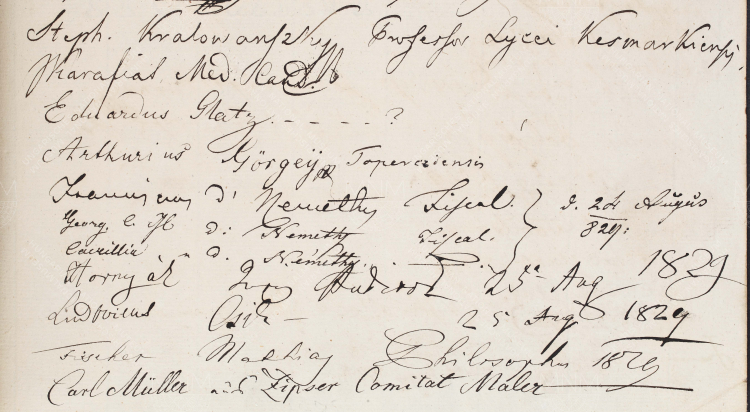 Steph. Kralowanszky Professor Lycei Kesmarkiensis,
Med. Cand.
Eduardus Glatz - - - - - ?
Arthurius Görgeij Toperciensis
Franciscus D' Némethy Fiscal. d. 24 Augus
Georg. D: Némethy Fiscal. 829.
d. Némethy.
Hornyák 25ª Aug 1829
Ludovicus 25 Aug 1829
Fischer Mathias Philosophus 1829
Carl Müller aus Zipser Comitat Maler